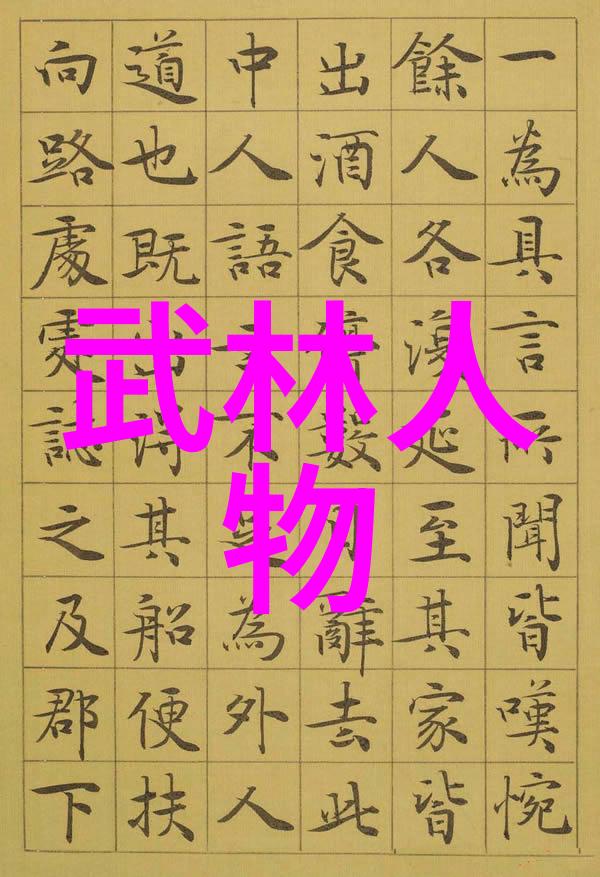 一為具言所聞皆嘆惋
餘人各復延至其家皆
出酒食數辭去此
中人語不為外人
道也既出得其船便扶
向路處處誌之及郡下
武林人
物